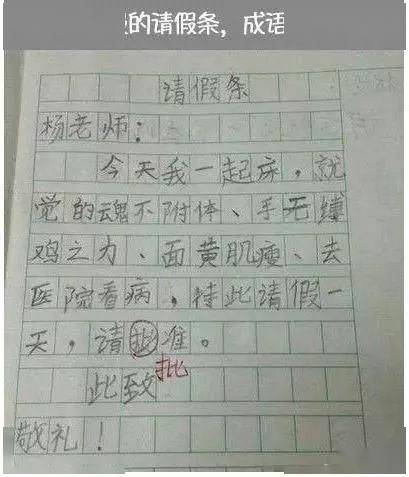 的请假条，成语
请假条
杨老师：
今天我一起床，就
觉的魂不附体、手无缚
鸡之力、面黄肌瘦、去
医院看病，特此请假一
天，请批准。
批
此致
敬礼！